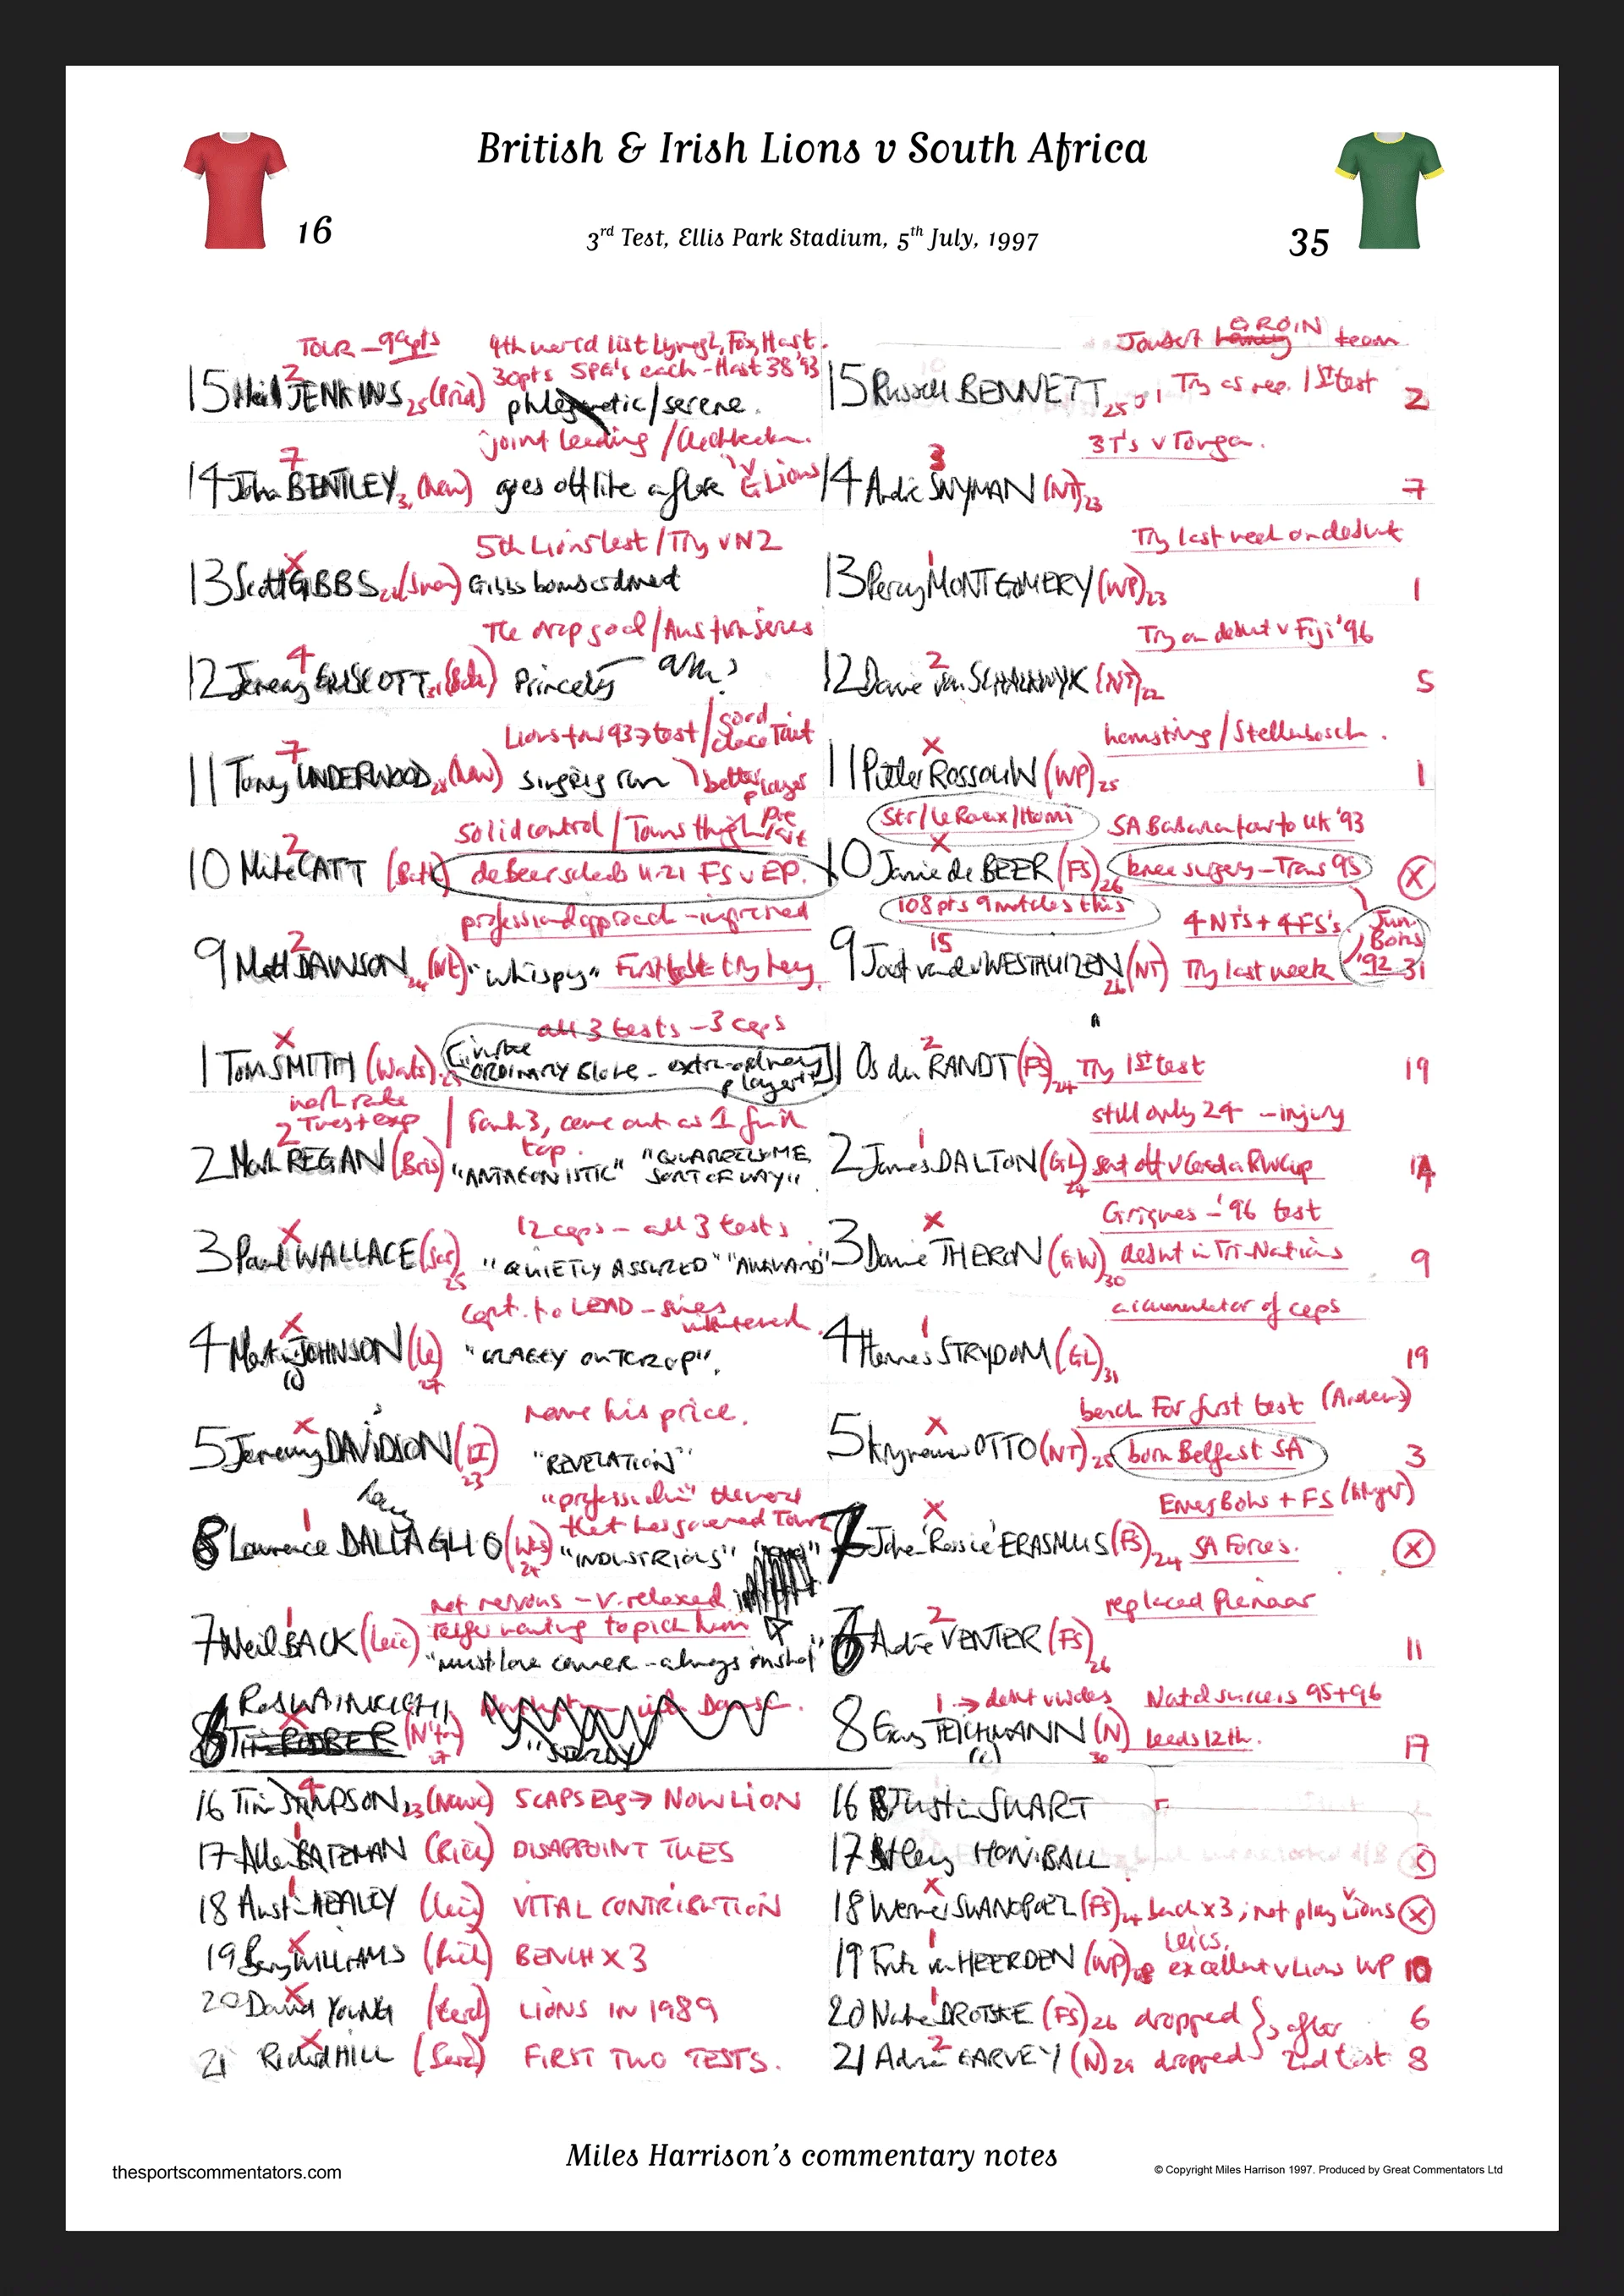 British & Irish Lions v South Africa
16
3rd Test, Ellis Park Stadium, 5th July, 1997
35
TOUR - 99pts
4th world list Lynagh, Fox, Hast.
15 Neil JENKINS 25 (Prid)
2
30pts 5PG's each - Hast 38 '93
phlegmatic/serene.
joint leading /
7
14 John BENTLEY 31 (New) goes off like a flare v G Lions
5th Lions test / Try v NZ
X
13 Scott GIBBS (Swan) Gibbs
The drop goal / Aus
4
12 Jeremy GUSCOTT 31 (Bath) Princely
Lions tour 93 → test / good
Tait
7
11 Tony UNDERWOOD 28 (New) singing run better player
solid control / Tours
2
10 Mike CATT (Bath) de Beer U-21 FS v EP.
professional approach - improved
2
9 Matt DAWSON 24 (N) "whispy" First test try hero.
all 3 tests - 3 caps
X
1 Tom SMITH (Wats) 25 ORDINARY BLOKE - extra-ordinary player"
work rate
2 Mark REGAN (Bris) "ANTAGONISTIC" "QUARRELSOME SORT OF WAY"
2
12 caps - all 3 tests
X
3 Paul WALLACE (Sar) 25 "QUIETLY ASSURED" "AWKWARD"
Capt. to LEAD - series
X
4 Martin JOHNSON (Le) 27 "CRAGGY OUTCROP".
(c)
name his price.
X
5 Jeremy DAVIDSON (LI) 23 "REVELATION"
"professional" the word
that has governed Tour
1
8 Lawrence DALLAGLIO (Was) 24 "INDUSTRIOUS"
not nervous - v. relaxed
1
7 Neil BACK (Leic) wanting to pick him
"must love camera - always in shot"
6 Rob WAINWRIGHT
Tim RODBER (N'ton) 27
16 Tim STIMPSON 23 (Newc) 5 CAPS Eng → NOW LION
17 Allan BATEMAN (Rich) DISAPPOINT TUES
18 Austin HEALEY (Leic) VITAL CONTRIBUTION
19 Barry WILLIAMS (Rich) BENCH X 3
20 David YOUNG (Card) LIONS IN 1989
21 Richard HILL (Sara) FIRST TWO TESTS.
Joubert GROIN team
15 Russell BENNETT 25 Try as rep. 1st test 2
3 T's v Tonga.
3
14 Andre SNYMAN (NT) 23 7
Try last week on debut
1
13 Percy MONTGOMERY (WP) 23 1
Try on debut v Fiji '96
2
12 Danie van SCHALKWYK (NT) 22 5
hamstring / Stellenbosch.
X
11 Pieter ROSSOUW (WP) 25 1
Str / Le Roux / Honi
SA Barbarian tour to UK '93
X
10 Jannie de BEER (FS) 26 knee surgery - Trans 95 X
108 pts 9 matches this
4 NT's + 4 FS's.
Jun. Boks '92
15
9 Joost van der WESTHUIZEN (NT) 26 Try last week 31
2
1 Os du RANDT (FS) 24 Try 1st test 19
still only 24 - injury
1
2 James DALTON (GL) 24 sent off v Canada RWCup
Griques - '96 test
X
3 Danie THERON (GW) 30 debut in Tri-Nations 9
accumulator of caps
1
4 Hannes STRYDOM (GL) 31 19
bench for first test (Andrews)
X
5 Krynauw OTTO (NT) 25 born Belfast SA 3
Emerg Boks + FS (Kruger)
X
7 Johan 'Rassie' ERASMUS (FS) 24 SA Forces. X
replaced Pienaar
2
6 Andre VENTER (FS) 26 11
1 → debut v Wales Natal success 95+96
8 Gary TEICHMANN (N) 30 leads 12th. 17
(c)
16 Justin SWART
17 Henry HONIBALL
X
18 Werner SWANEPOEL (FS) 24 bench x 3; not play v Lions X
Leics.
1
19 Fritz van HEERDEN (WP) excellent v Lions WP 10
1
20 Naka DROTSKE (FS) 26 dropped } after 6
2
21 Adrian GARVEY (N) 29 dropped } 2nd test 8
Miles Harrison's commentary notes
thesportscommentators.com
© Copyright Miles Harrison 1997. Produced by Great Commentators Ltd